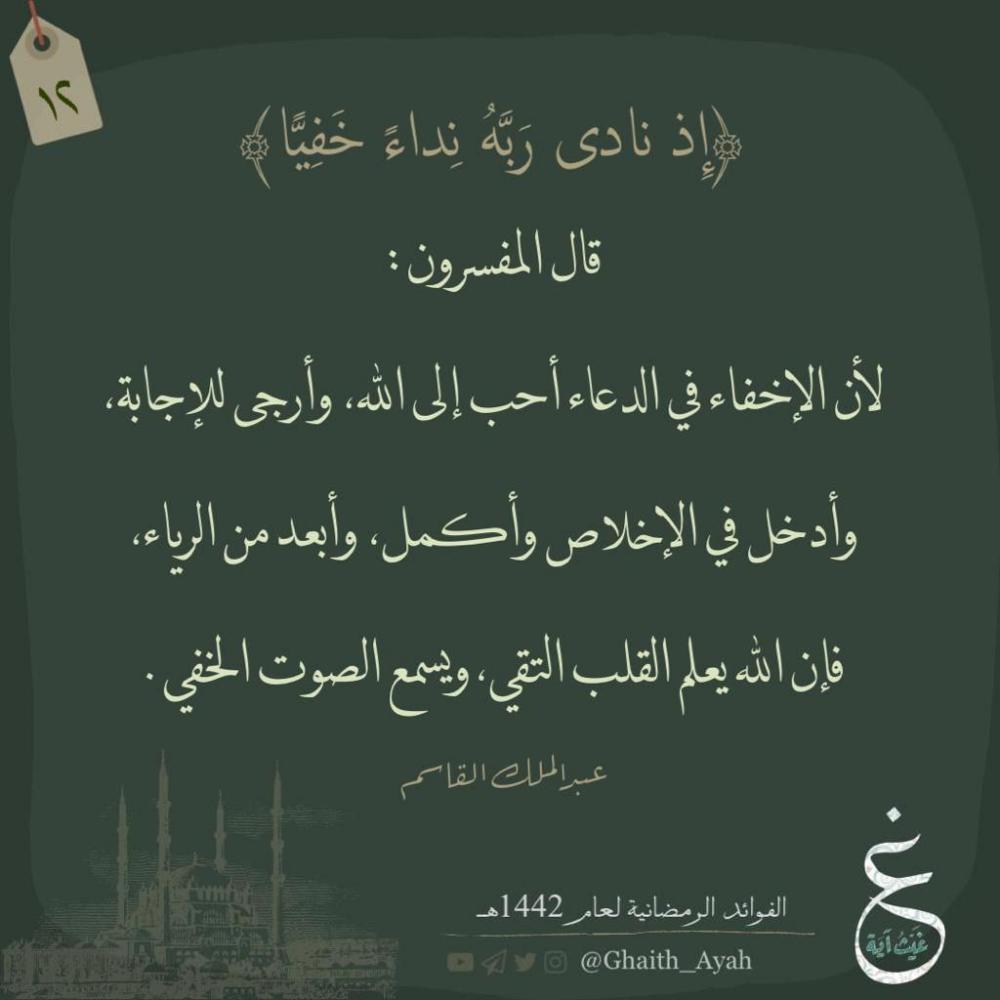 ١٢
﴿إِذ نادى رَبَّهُ نِداءً خَفِيًّا﴾
قال المفسرون :
لأن الإخفاء في الدعاء أحب إلى الله، وأرجى للإجابة،
وأدخل في الإخلاص وأكمل، وأبعد من الرياء،
فإن الله يعلم القلب التقي، ويسمع الصوت الخفي .
عبدالملك القاسم
الفوائد الرمضانية لعام 1442هـ
@Ghaith_Ayah
غ
غَيْثُ آيَة